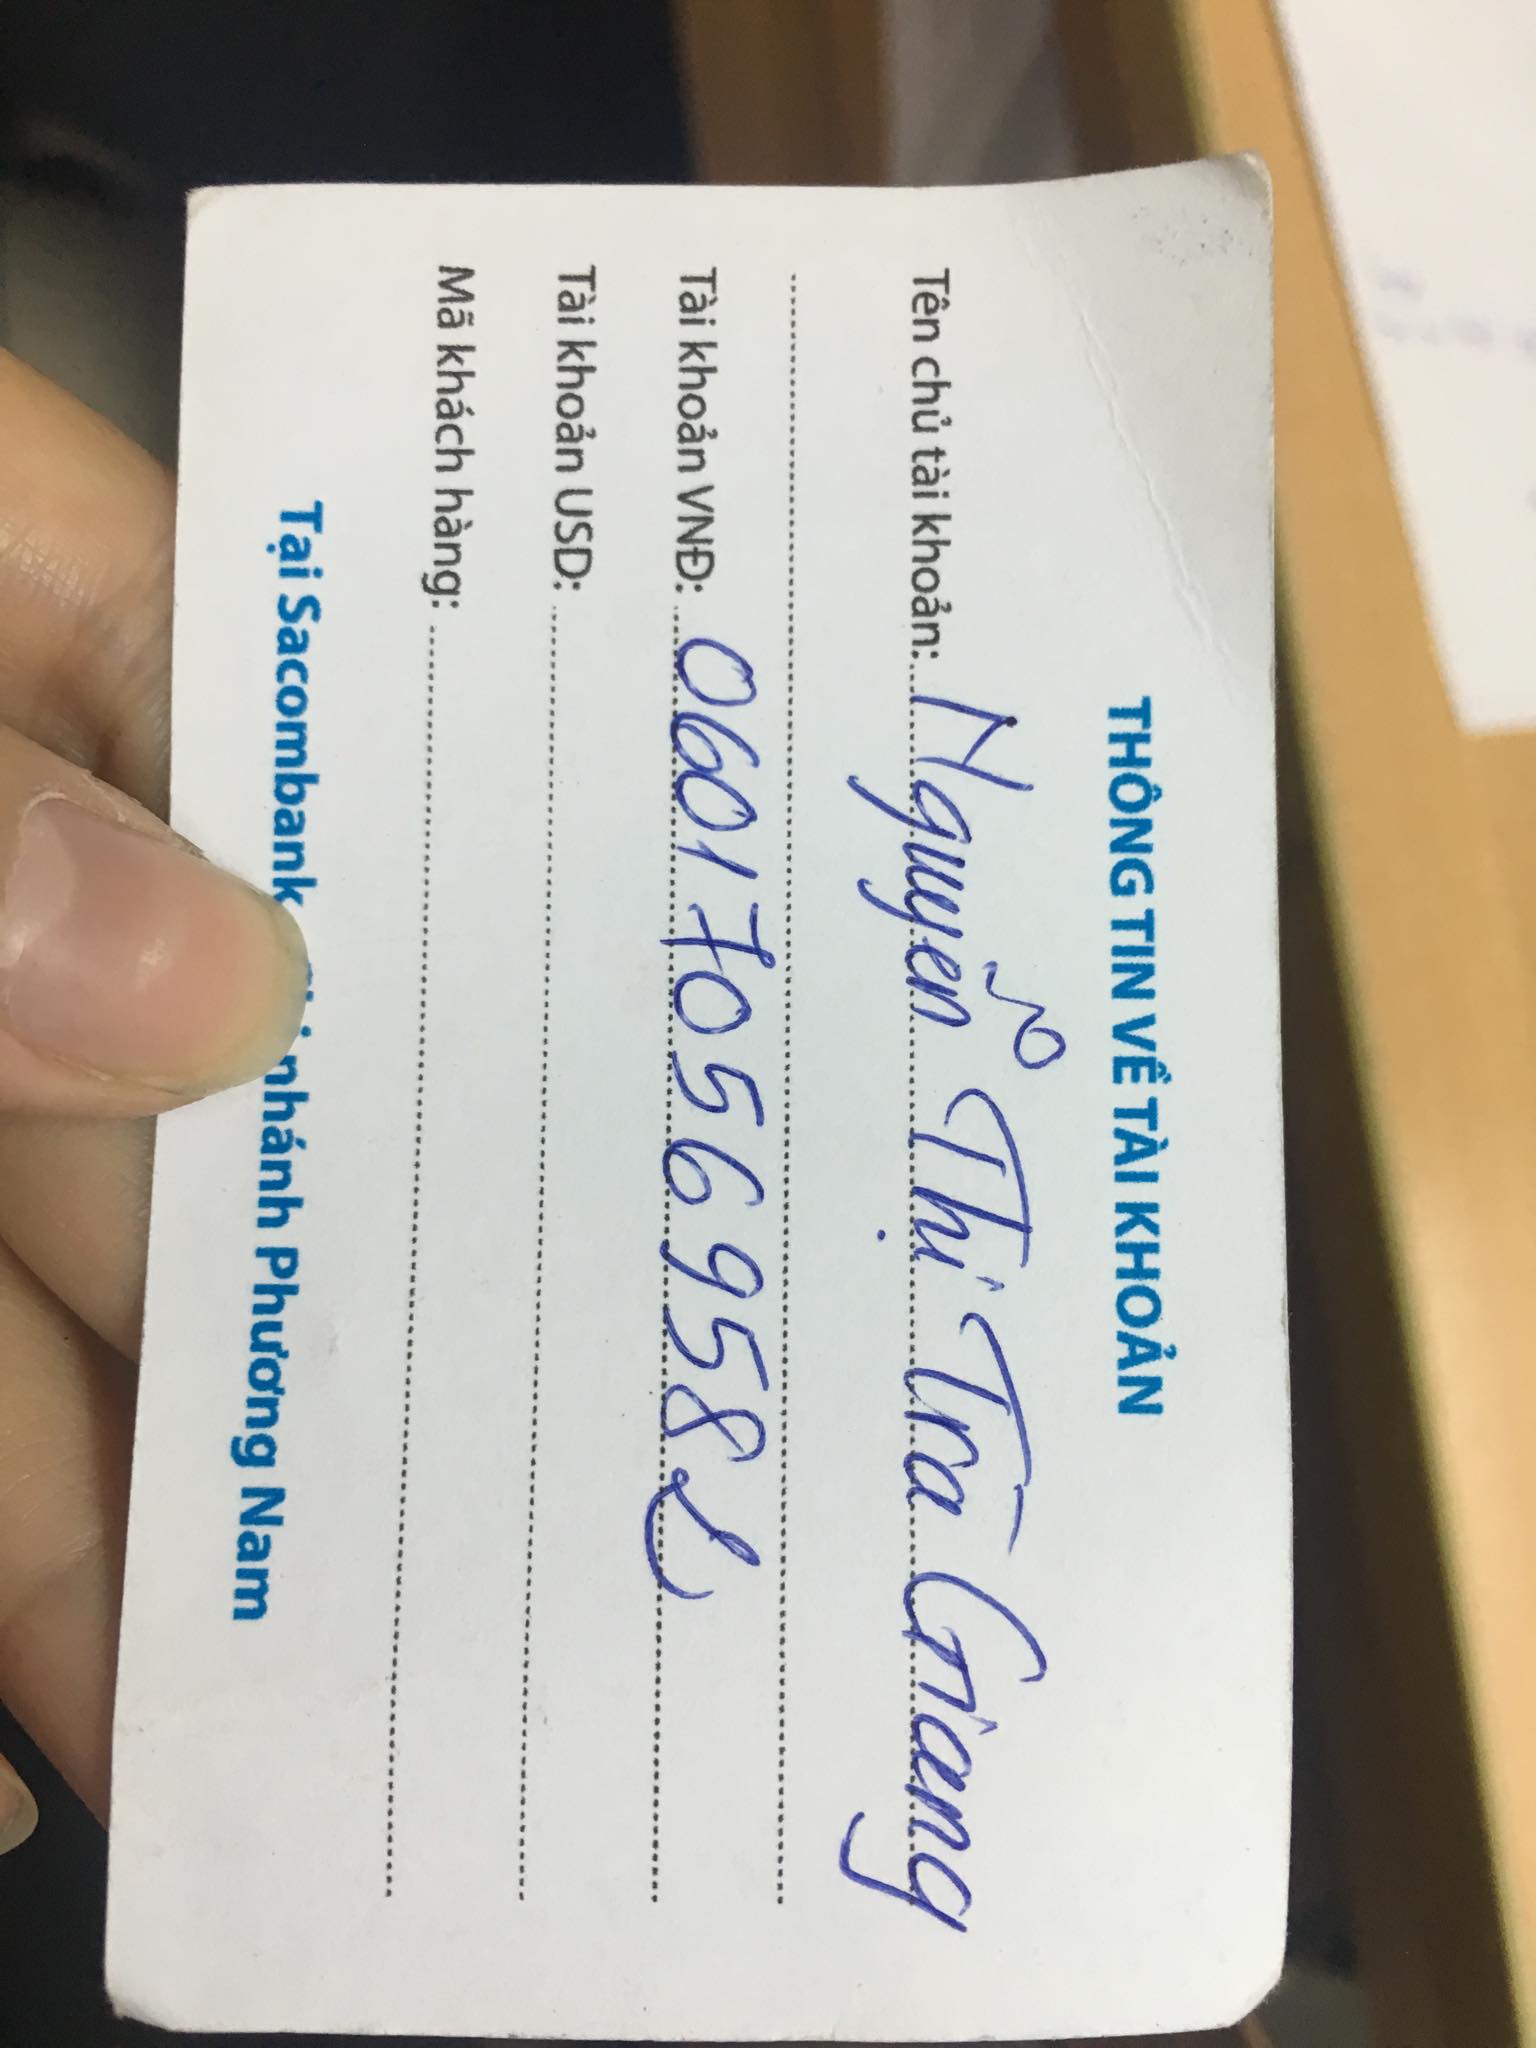 THÔNG TIN VỀ TÀI KHOẢN
Tên chủ tài khoản: Nguyễn Thị Trà Giang
Tài khoản VNĐ: 060170569582
Tài khoản USD:
Mã khách hàng:
Tại Sacombank nhánh Phương Nam